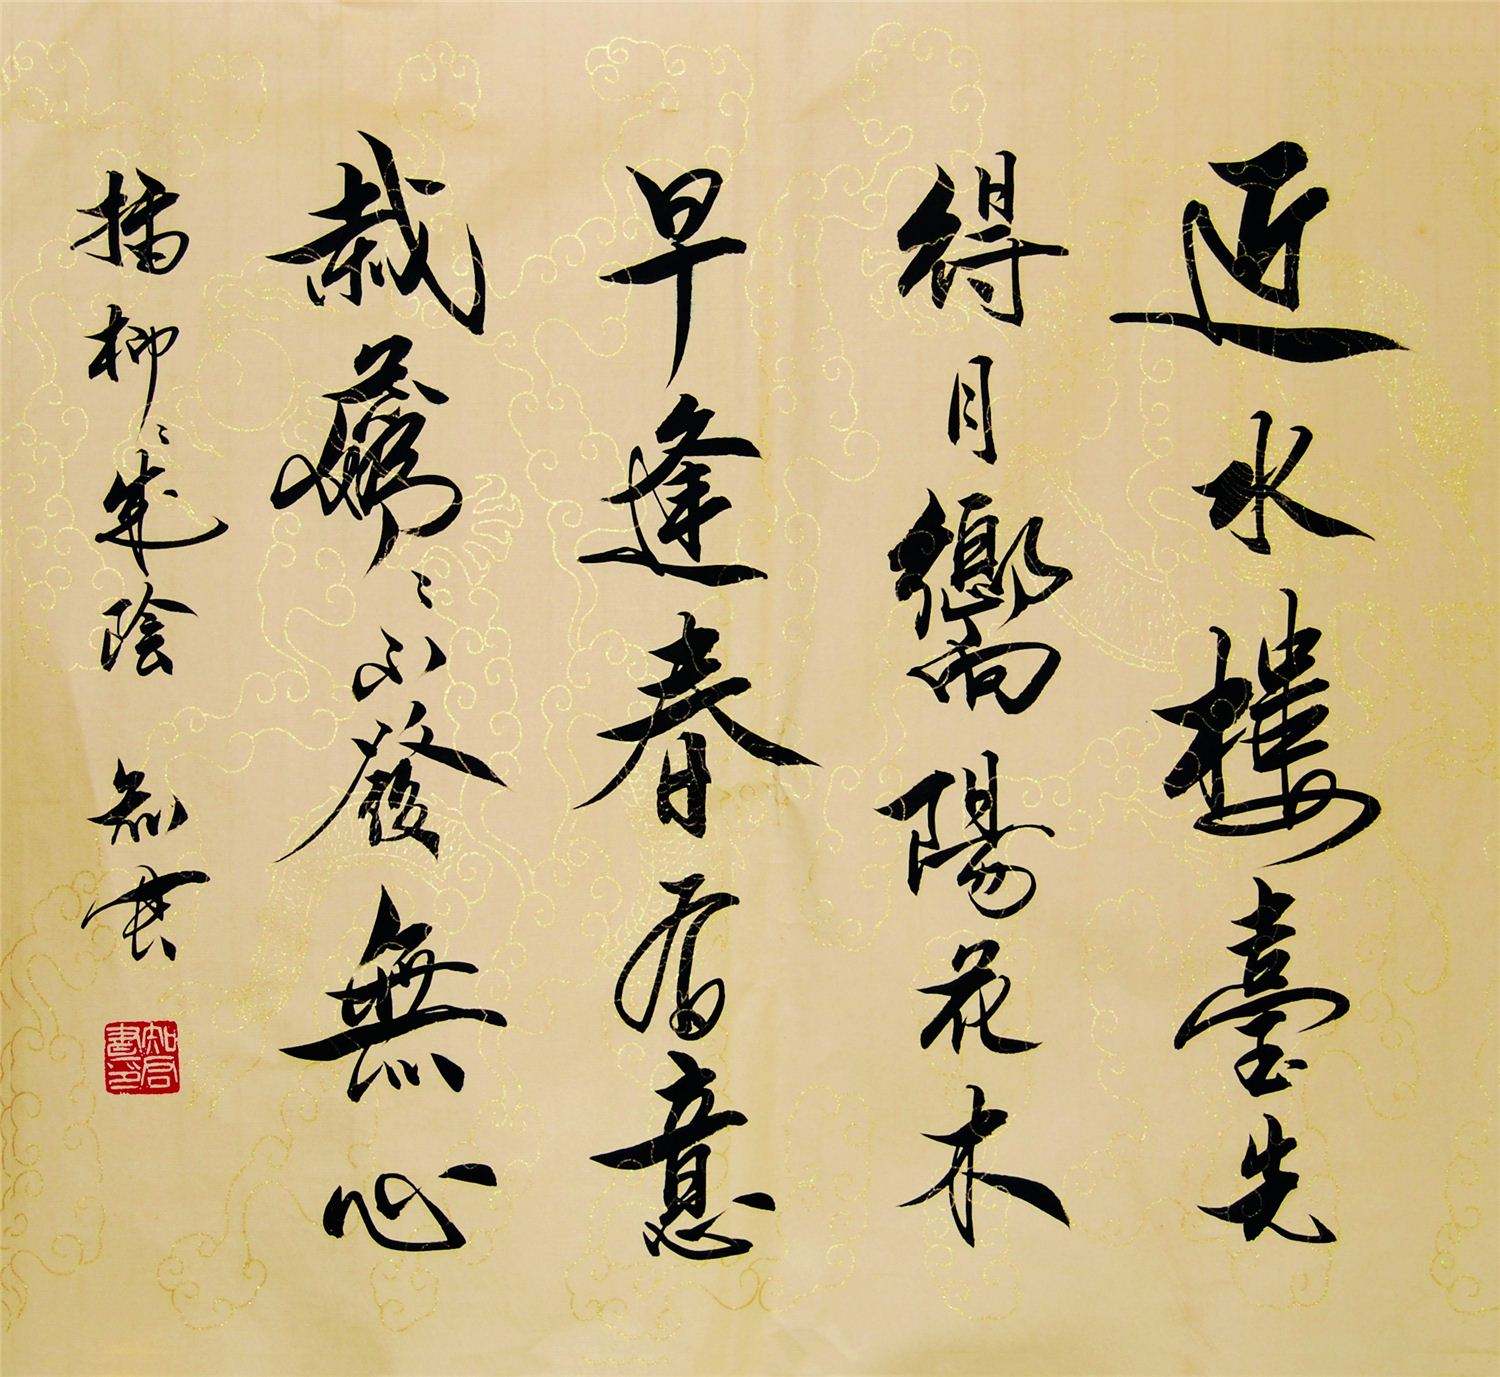 近水樓臺先
得月嚮陽花木
早逢春有意
栽蘤〻不發無心
插柳〻成陰 知
知君書印